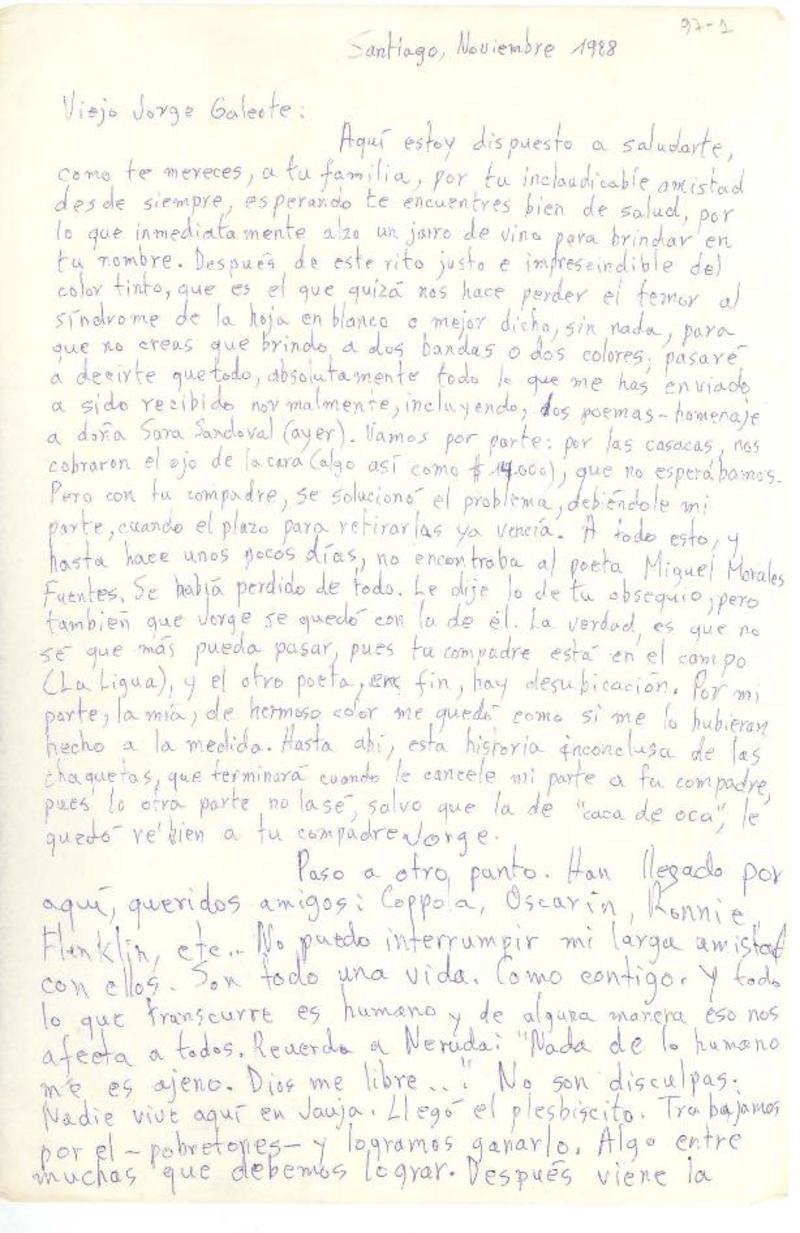 97-1
Santiago, Noviembre 1988
Viejo Jorge Galeote:
Aquí estoy dispuesto a saludarte,
como te mereces, a tu familia, por tu inclaudicable amistad
desde siempre, esperando te encuentres bien de salud, por
lo que inmediatamente alzo un jarro de vino para brindar en
tu nombre. Después de este rito justo e imprescindible del
color tinto, que es el que quizá nos hace perder el temor al
síndrome de la hoja en blanco o mejor dicho, sin nada, para
que no creas que brindo a dos bandas o dos colores; pasaré
a decirte que todo, absolutamente todo lo que me has enviado
a sido recibido normalmente, incluyendo, los poemas-homenaje
a doña Sara Sandoval (ayer). Vamos por parte: por las casacas, nos
cobraron el ojo de la cara (algo así como $ 14.000), que no esperábamos.
Pero con tu compadre, se solucionó el problema, debiéndole mi
parte, cuando el plazo para retirarlas ya vencía. A todo esto, y
hasta hace unos pocos días, no encontraba al poeta Miguel Morales
Fuentes. Se había perdido de todo. Le dije lo de tu obsequio, pero
también que Jorge se quedó con la de él. La verdad, es que no
sé que más pueda pasar, pues tu compadre está en el campo
(La Ligua), y el otro poeta, en fin, hay desubicación. Por mi
parte, la mía, de hermoso color me quedó como si me lo hubieran
hecho a la medida. Hasta ahí, esta historia inconclusa de las
chaquetas, que terminará cuando le cancele mi parte a tu compadre,
pues lo otra parte no la sé, salvo que la de "caca de oca", le
quedó re'bien a tu compadre Jorge.
Paso a otro punto. Han llegado por
aquí, queridos amigos: Coppola, Oscarín, Ronnie,
Flanklin, etc... No puedo interrumpir mi larga amistad
con ellos. Son todo una vida. Como contigo. Y todo
lo que transcurre es humano y de alguna manera eso nos
afecta a todos. Recuerdo a Neruda: "Nada de lo humano
me es ajeno. Dios me libre..." No son disculpas.
Nadie vive aquí en Jauja. Llegó el plesbiscito. Trabajamos
por el -pobretones- y logramos ganarlo. Algo entre
muchas que debemos lograr. Después viene la